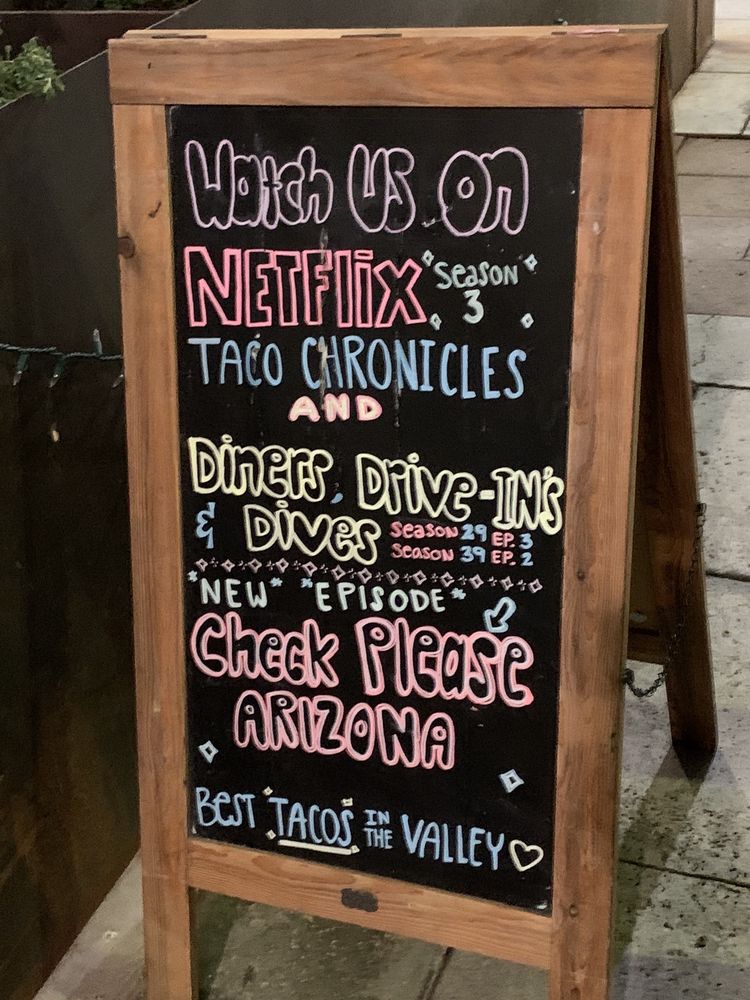 Watch US On
NETFLiX Season 3
TACO CHRONICLES
AND
Diners, Drive-IN's
& Dives Season 29 EP. 3
Season 39 EP. 2
*NEW* *EPISODE*
Check Please
ARIZONA
BEST TACOS IN THE VALLEY